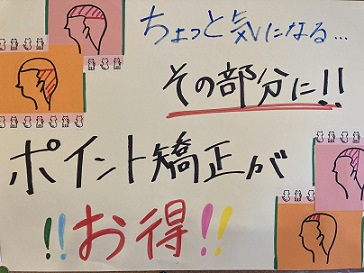 ちょっと気になる…
その部分に!!
ポイント矯正が
!!お得!!